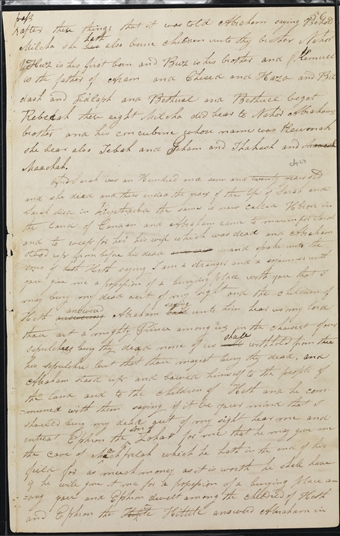 after these things that it was told Abraham saying Behold
Milcha she hath also borne children unto thy brother Nahor
Huz is his first born and Buz is his brother and Kemuel
is the father of Aram and Chesed and Hazo and Pil
dash and Jidlaph and Bethuel and Bethuel begot
Rebecah these eight Milcha did bear to Nahor Abrahams
brother and his concubine whose name was Reumah
she bear also Tebah and Gaham and Thahash and
Maachah.
And Sarah was an Hundred and seven and twenty years old
and she dead and these were the years of the life of Sarah and
Sarah died in Kirjatharba the same is now called Hebron in
the land of Canaan and Abraham came to mourn for Sarah
and to weep for her his wife which was dead and Abraham
stood up from before his dead and spake unto the
sons of Heth saying I am a stranger and a sojourner with
you give me a possession of a burying place with you that I
may bury my dead out of my sight and the children of
Heth answered Abraham saying unto him hear us my lord
thou art a mighty prince among us in the choicest of our
sepulchres bury thy dead none of us shall withhold from thee
his sepulchre but that thou mayest bury thy dead and
Abraham stood up and bowed himself to the people of
the land and to the children of Heth and he com
muned with them saying if it be your mind that I
should bury my dead out of my sight hear me and
entreat Ephron the son of Zohar for me that he may give me
the cave of Machpelah which he hath in the end of his
field for as much money as it is worth he shall have
if he will give it me for a possession of a burying place am
ong you and Ephron dwelt among the children of Heth
and Ephron the Hittite answered Abraham in